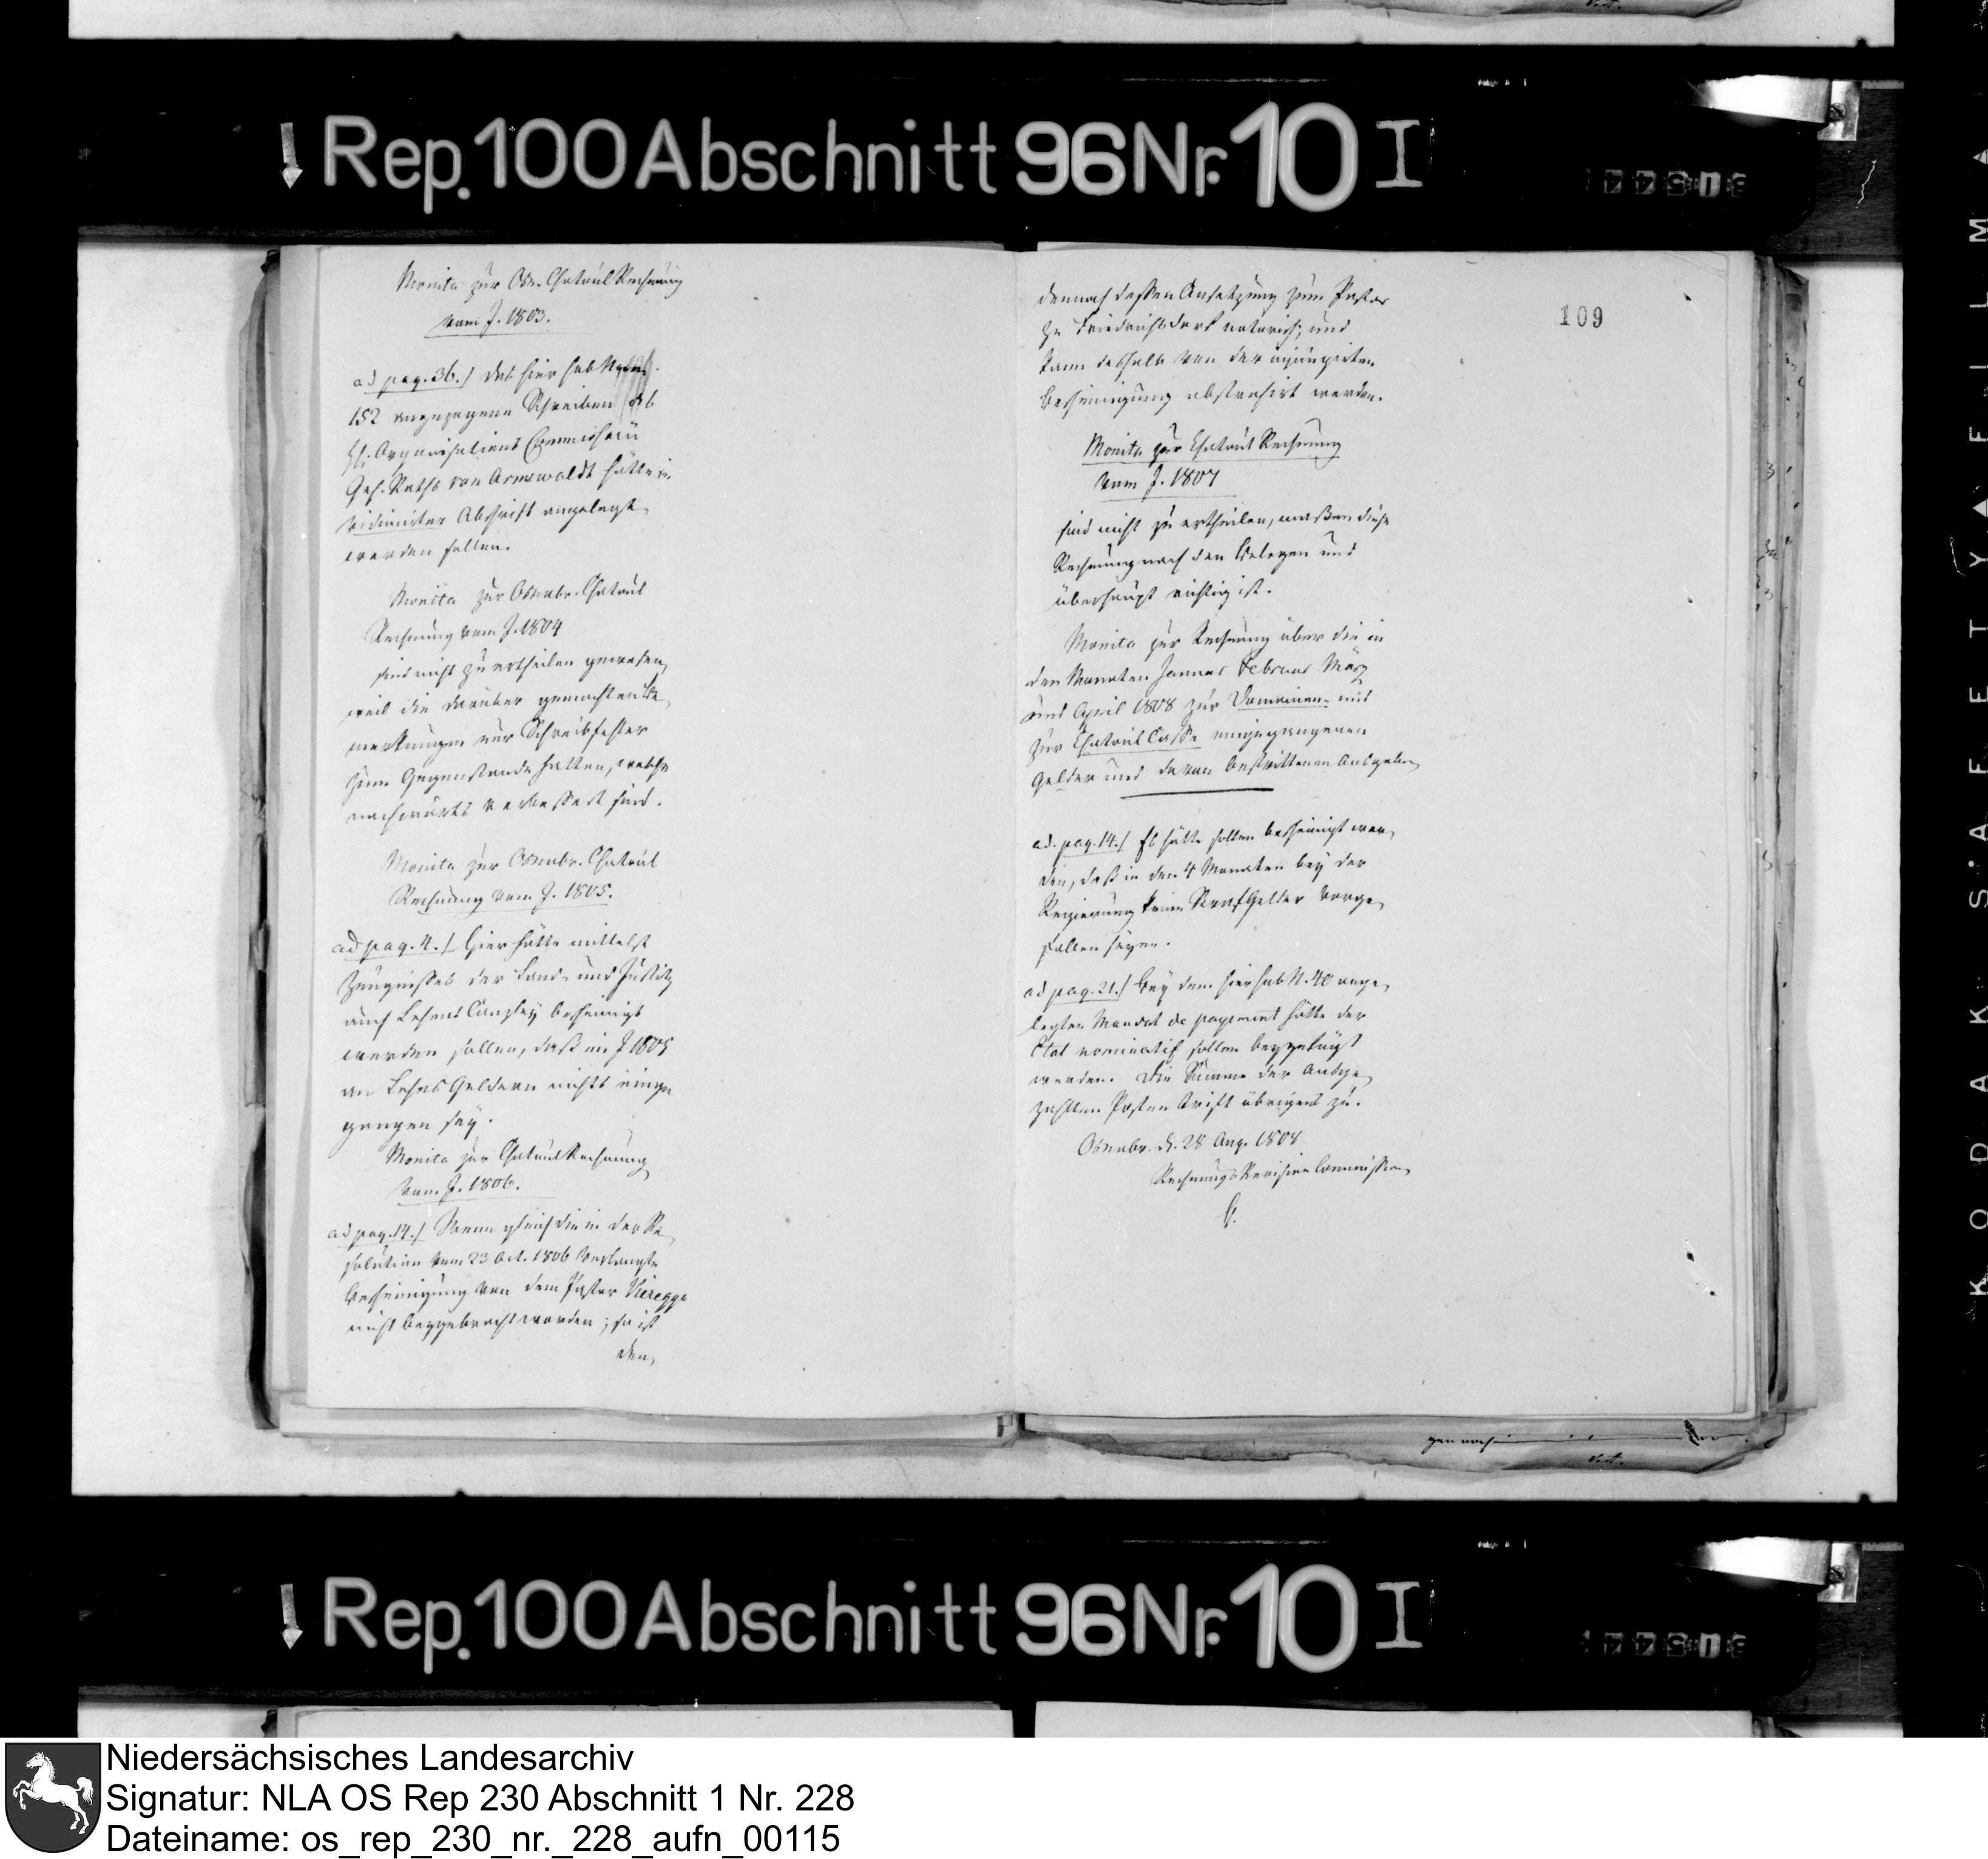 Rep. 100 Abschnitt 96 Nr. 10 I
Monita zur Osn. Chatoul Rechnung
vom J. 1803.
ad pag. 36./ das hier sub
152 angezogene Schreiben des
H. Organisations Commissarii
Geh. Raths von Arnswaldt hätte in
vidimirter Abschrift angelegt
werden sollen.
Monita zur Osnabr. Chatoul
Rechnung vom J. 1804
sind nicht zu ertheilen gewesen,
weil die darüber gemachten Be,
merkungen nur Schreibfehler
zum Gegenstande hatten, welche
nachwärts verbessert sind.
Monita zur Osnabr. Chatoul
Rechnung vom J. 1805.
ad pag. 4./ Hier hätte mittelst
Zeugnisses der Land- und Justitz
auch Lehns Canzley bescheinigt
werden sollen, daß im J 1805
an Lehns Geldern nichts einge
gangen sey.
Monita zur Chatoul Rechnung
vom J. 1806.
ad pag. 14./ Wenn gleich die in der Re,
solution vom 23 Oct. 1806 verlangte
Bescheinigung von dem Pastor Vieregge
nicht beygebracht worden; so ist
den,
109
dennoch dessen Ansetzung zum Pastor
zu Friedrichsdorf notorisch, und
kann deshalb von der injungirten
Bescheinigung abstrahirt werden.
Monita zur Chatoul Rechnung
vom J. 1807
sind nicht zu ertheilen, maßen diese
Rechnung nach den Belegen und
überhaupt richtig ist.
Monita zur Rechnung über die in
den Monaten Januar Februar März
und April 1808 zur Domainen- und
zur Chatoul Casse eingegangenen
Gelder und davon bestrittenen Ausgaben,
ad. pag. 14./ Es hätte sollen bescheinigt wer,
den, daß in den 4 Monaten bey der
Regierung keine Strafgelder vorge,
fallen seyen.
ad pag. 21./ Bey dem hier sub N. 40 ange,
legten Mandat de payement hätte der
Etat nominatif sollen beygefügt
werden. Die Summe der ausge,
zahlten Posten trift übrigens zu.
Osnabr. d. 28 Aug. 1808
Rechnungs Revision Commission,
Rep. 100 Abschnitt 96 Nr. 10 I
KODAK SAFETY FILM
Niedersächsisches Landesarchiv
Signatur: NLA OS Rep 230 Abschnitt 1 Nr. 228
Dateiname: os_rep_230_nr._228_aufn_00115